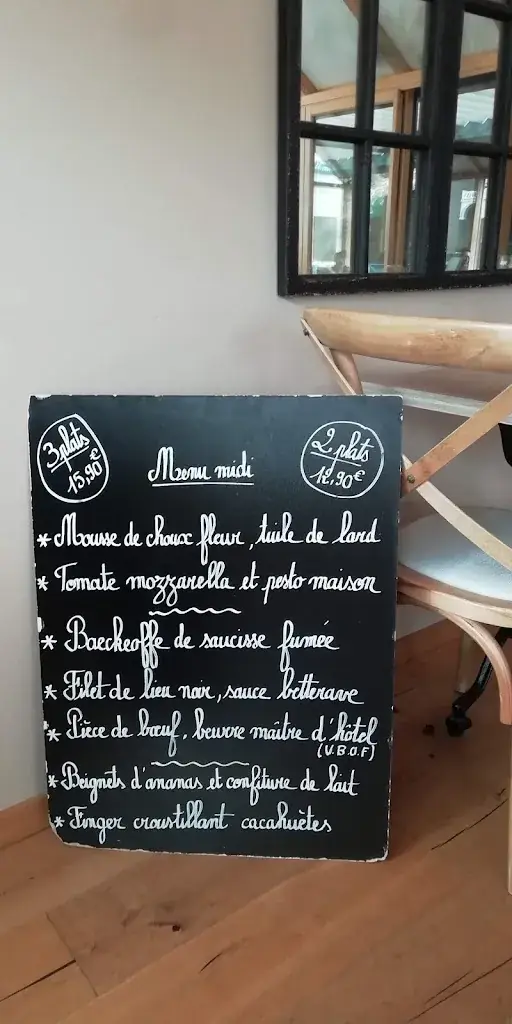 3 plats
15,90€
Menu midi
2 plats
12,90€
* Mousse de choux fleur, tuile de lard
* Tomate mozzarella et pesto maison
* Baeckeoffe de saucisse fumée
* Filet de lieu noir, sauce betterave
* Pièce de bœuf, beurre maître d'hôtel
(V.B.O.F)
* Beignets d'ananas et confiture de lait
* Finger croustillant cacahuètes